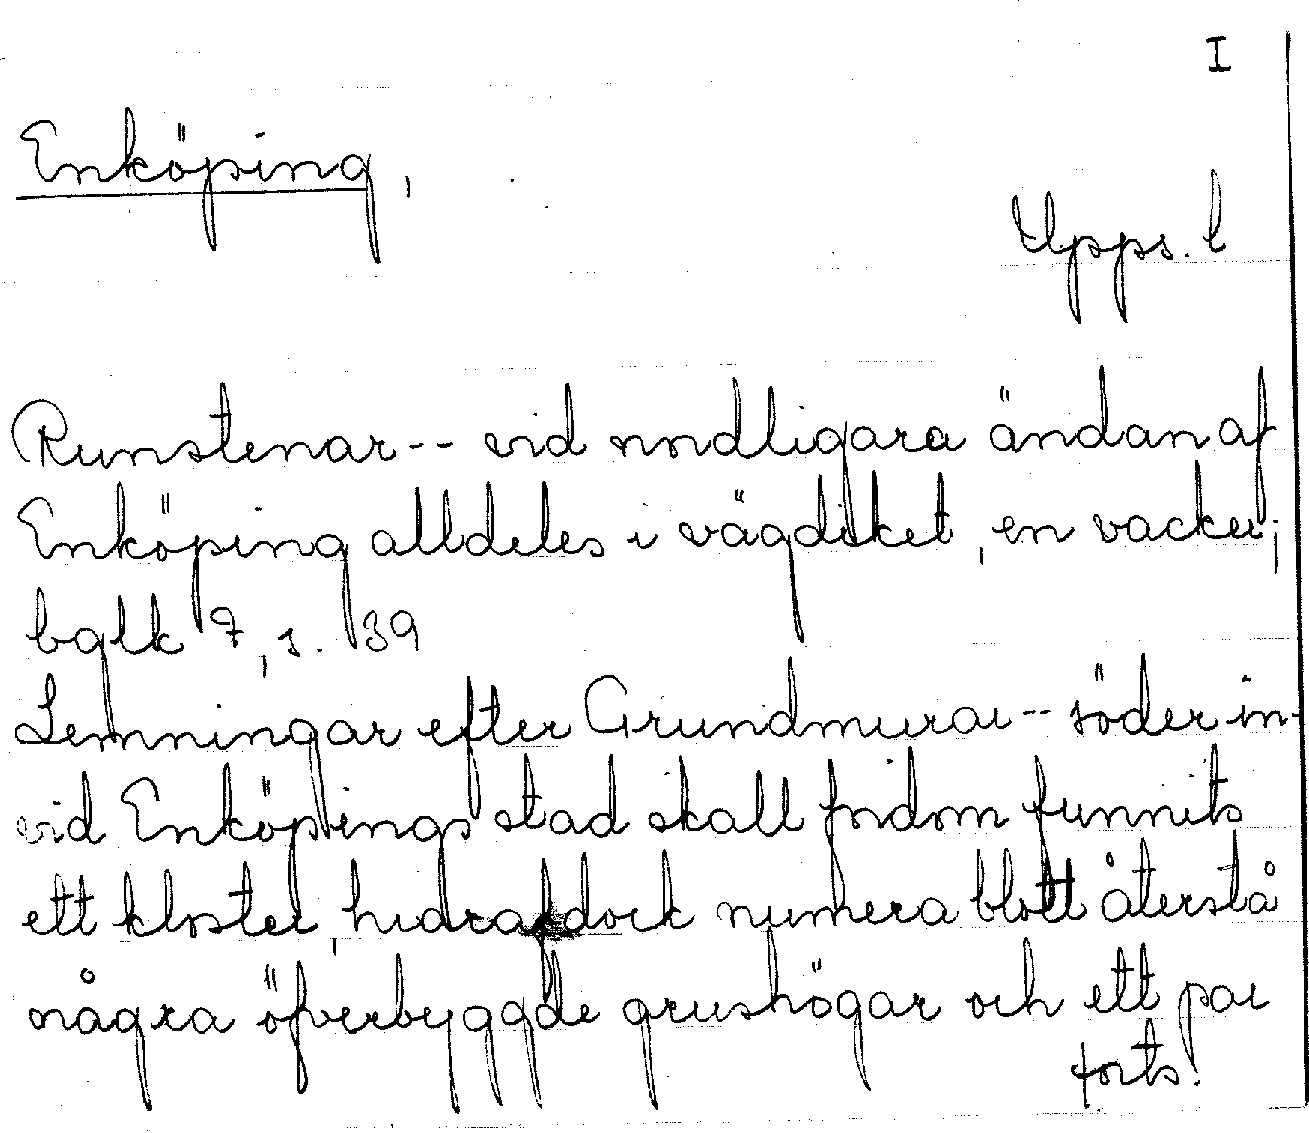 I
Enköping,
Upps. l
Runstenar -- vid nordligara ändan af
Enköping alldeles i vägdiket, en vacker;
balk 7, s. 39
Lemningar efter Grundmurar -- söder in-
vid Enköpings stad skall fordom funnits
ett kloster, hvaraf dock numera blott återstå
några öfverbyggde grushögar och ett par
forts.